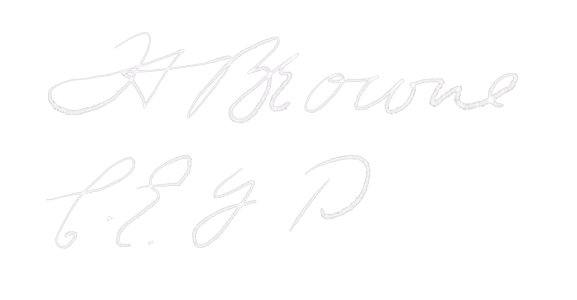 H Browne
C. E. y D